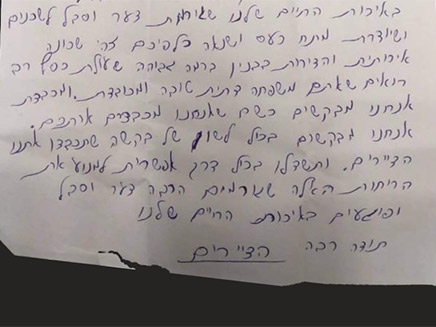 באיכות החיים שלנו שגורמת צער וסבל לשכנים
ושיוצרת מתח כעס ושנאה כלפיכם שכונה
איכותית והדירות בבנין ברמה גבוהה שעולות כסף רב
רואים שאתם משפחה דתית טובה ומכובדת. ומכבדת
אנחנו מבקשים כשם שאנחנו מכבדים אתכם.
אנחנו מבקשים בכל לשון של בקשה שתכבדו אתנו
הדיירים. ותשתדלו בכל דרך אפשרית למנוע את
הריחות האלה שגורמים הרבה צער וסבל
ופוגעים באיכות החיים שלנו
תודה רבה הדיירים